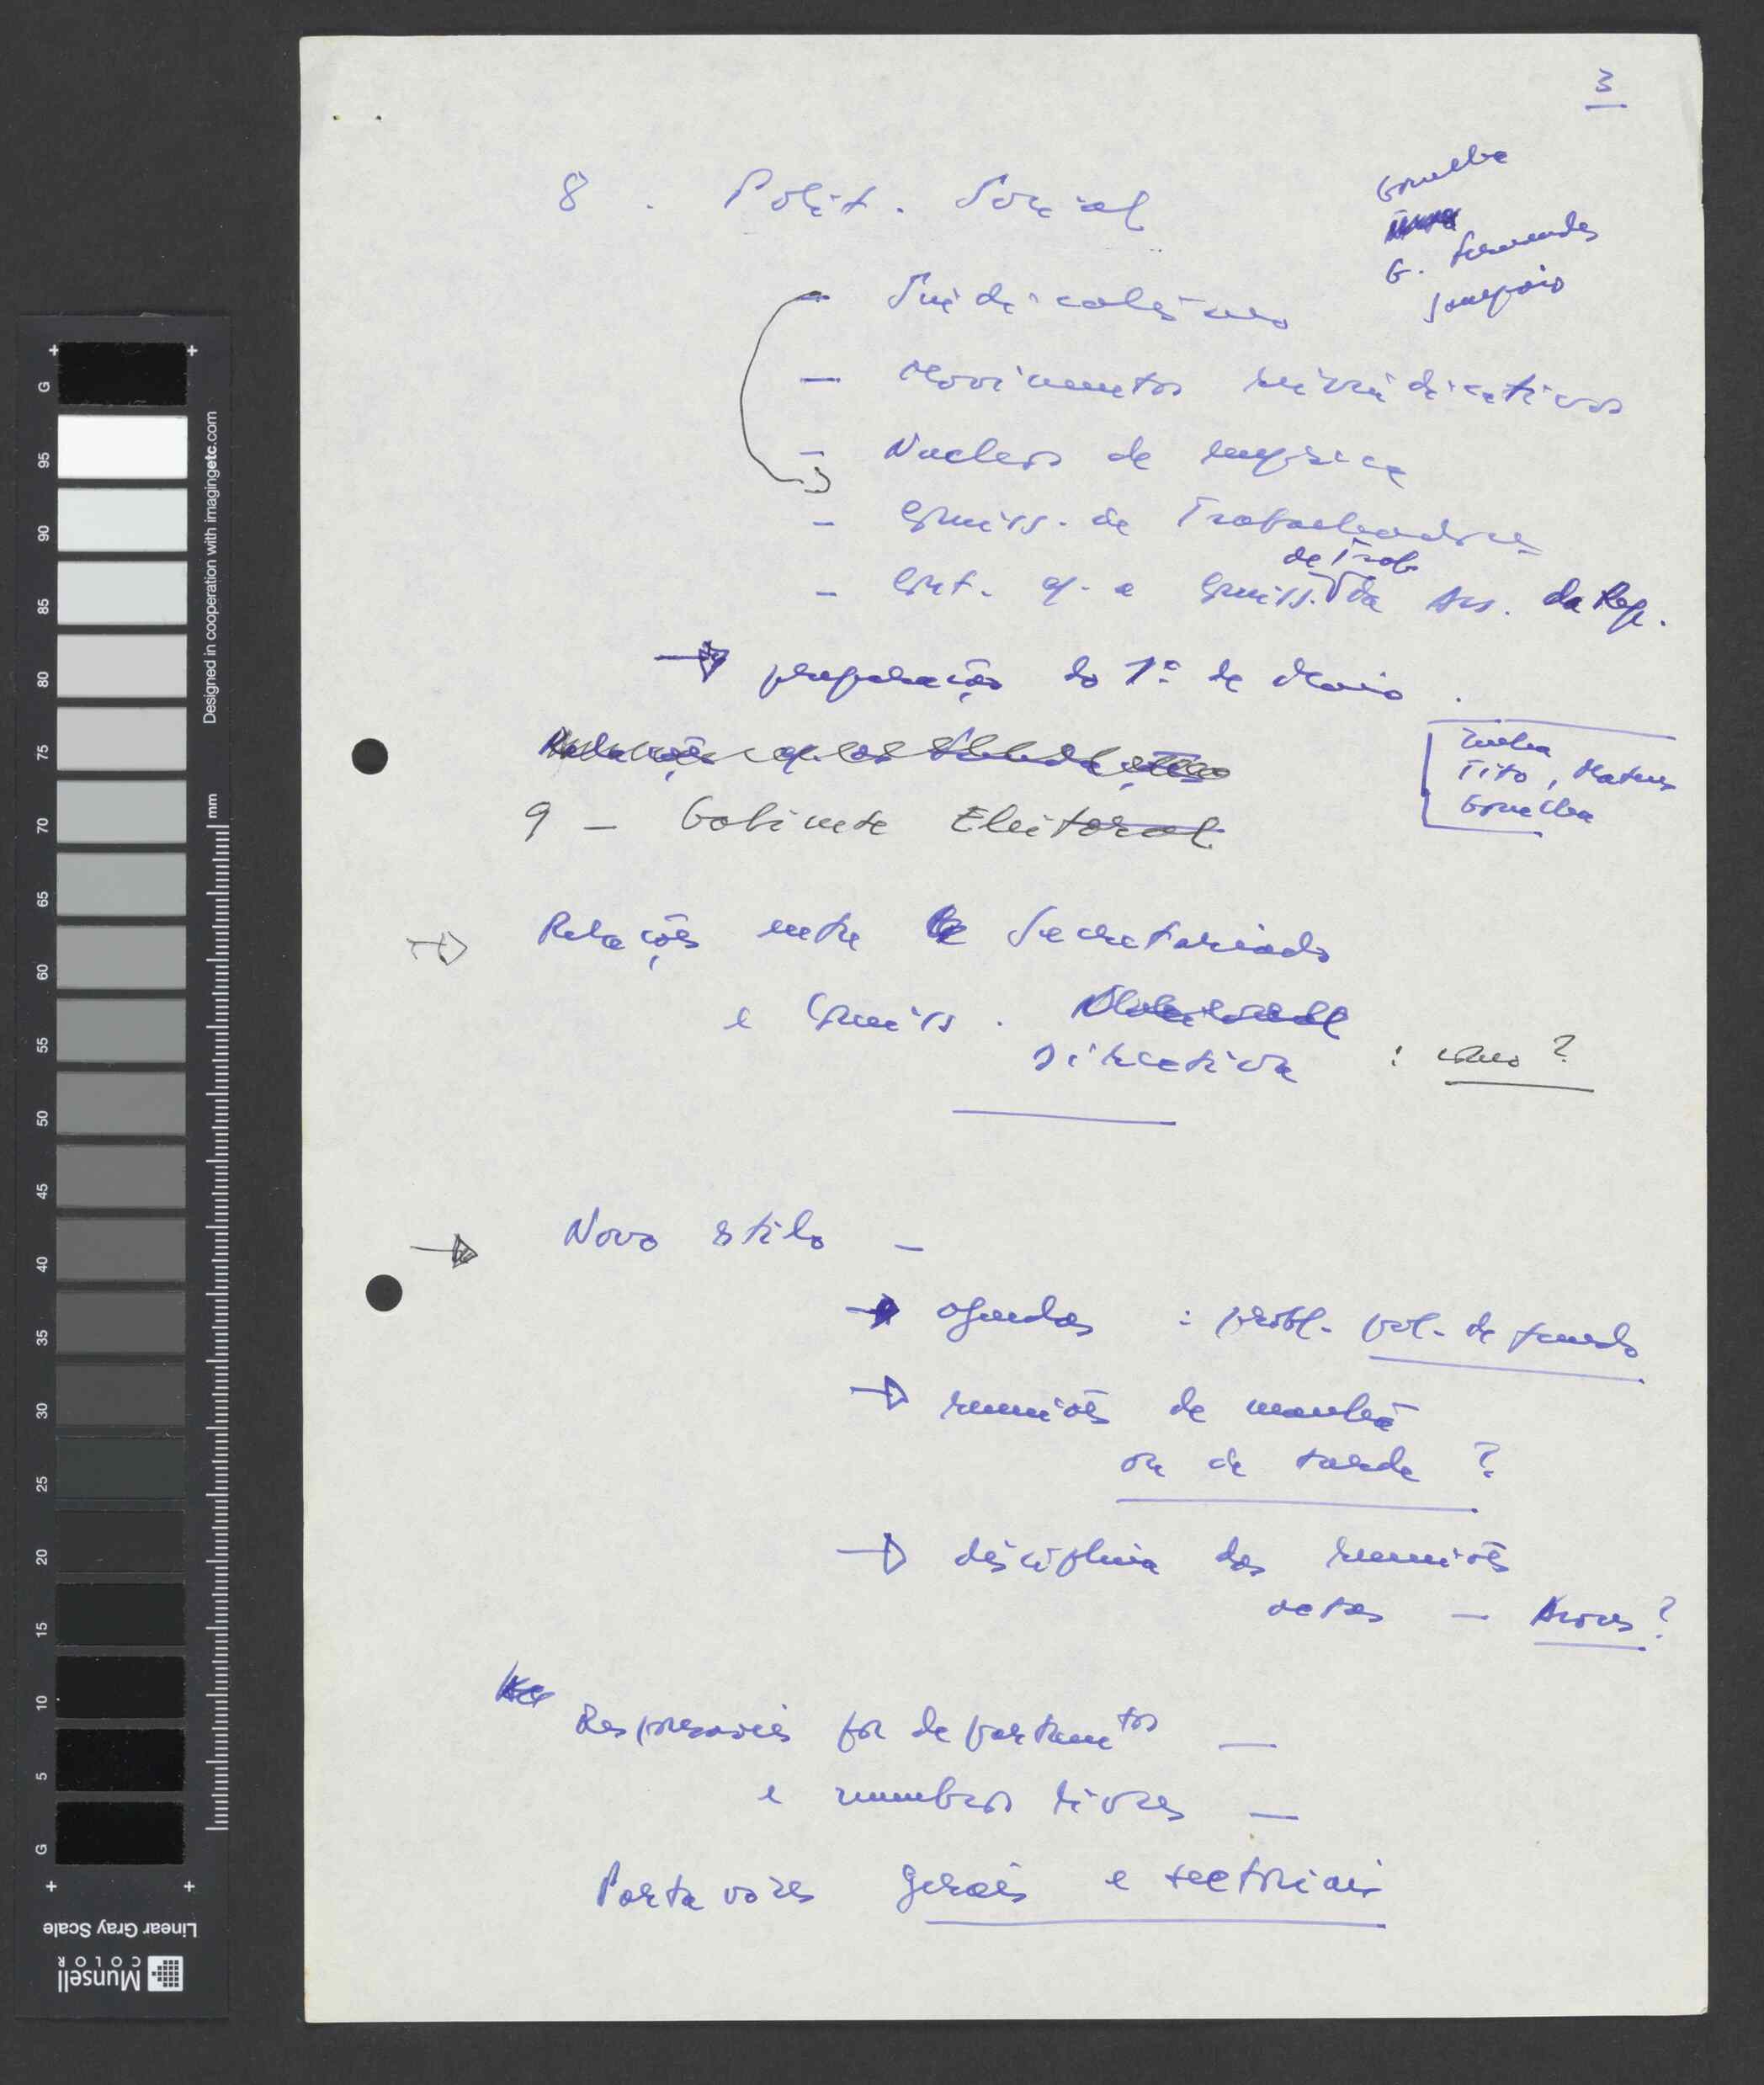 3
8 . Polit. Social
G. Fernandes
Sampaio
- Sindicalismo
- Movimentos reivindicativos
- Nucleos de empresa
- Comiss. de Trabalhadores
de Trab
- Cont. c/ a Comiss. da Ass. da Rep.
→ preparação do 1º de Maio .
Tito, Mateus
9 - Gabinete Eleitoral
→ Relações entre Secretariado
e Comiss.
Directiva : como ?
→ Novo estilo -
→ agendas : probl. pol. de fundo
→ reuniões de manhã
ou de tarde ?
→ disciplina das reuniões
actas - Aires ?
Responsáveis por departamentos —
e membros livres —
Porta vozes gerais e sectoriais
G
95
90
85
80
75
70
65
60
55
50
45
40
35
30
25
20
15
10
5
G
mm
Designed in cooperation with imagingetc.com
Linear Gray Scale
Munsell
COLOR